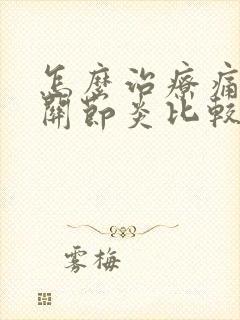 怎麼治療痛
關節炎比較
雾梅